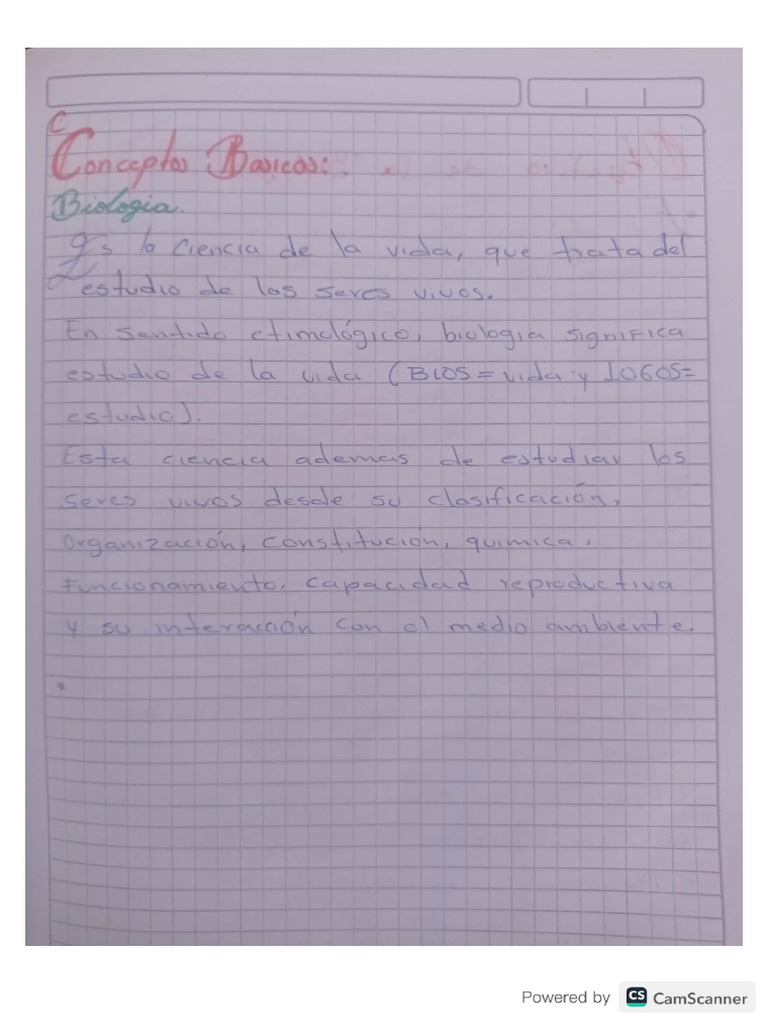 C
Conceptos Basicos:
Biologia.
Es la ciencia de la vida, que trata del
estudio de los seres vivos.
En sentido etimológico, biologia significa
estudio de la vida (BIOS = vida y LOGOS=
estudio).
Esta ciencia ademas de estudiar los
seres vivos desde su clasificación,
organización, constitución, quimica,
Funcionamiento, capacidad reproductiva
y su interacción con el medio ambiente.
Powered by CS CamScanner